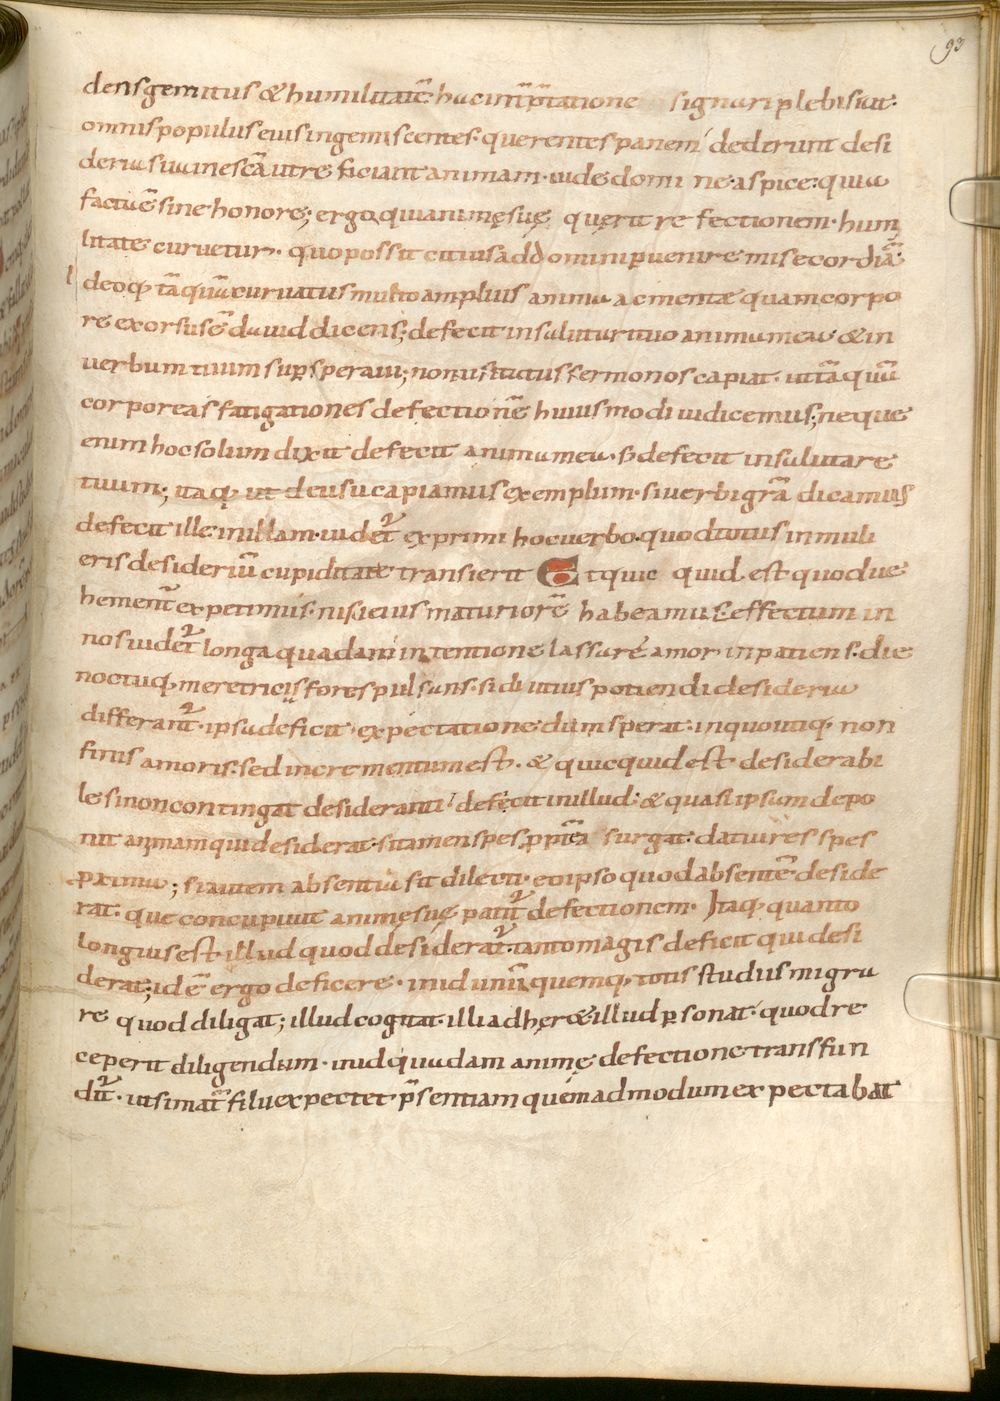 93
dens gemitus & humilitatē hac int̄p̄tatione signari plebis ait·
omnis populus eius ingemiscentes· querentes panem dederunt desi
deria sua in escā ut reficiant animam· uide domine aspice quia
facta ē sine honore; ergo qui animę suę quęrit refectionem· humi
litate curuetur· quo possit citius ad dominū peruenire misecordiā·
l deoq; tāquā curuatus multo amplius anima ac mente quam corpo
re exorsus ē dauid dicens; defecit in salutari tuo anima mea & in
uerbum tuum sup speraui; non uistitutus sermo nos capiat· ut tāquā
corporeas fatigationes defectionē huius modi iudicemus; neque
enim hoc solum dixit defecit anima mea· s; defecit in salutare
tuum; itaq; ut de usu capiamus exemplum· si uerbi grā dicamus
defecit ille in illam· uidet᷑ exprimi hoc uerbo· quod totus in muli
eris desideriū cupiditate transierit Et quic quid est quod ue
hement̄ expetimus· nisi eius maturiorē habeamus effectum in
nos uidet᷑ longa quadam intentione lassare amor inpatiens· die
noctuq; meretriciis fores pulsans· si diutius potiendi desideria
differant᷑· ipsa deficit expectatione dum sperat· in quo utiq; non
finis amoris· sed incrementum est· & quicquid est desiderabi
le si non contingat desideranti· defecit in illud· & quasi ipsum depo
nit animam qui desiderat· si tamen spes surgat· datiures spes
proxima; si autem absentia sit dilecti· eo ipso quod absentē deside
rat· que concupiuit animę suę patit᷑ defectionem· Itaq; quanto
longius est illud quod desiderat᷑· tanto magis deficit qui desi
derat; id ē ergo deficere· in id unūquemq; totis studiis migra
re quod diligat; illud cogitat· illi adhęr& illud personat· quod re
ceperit diligendum· in id quadam animę defectione transfun
dit᷑· ut si mat̄ filii expectet p̄sentiam quem ad modum expectabat